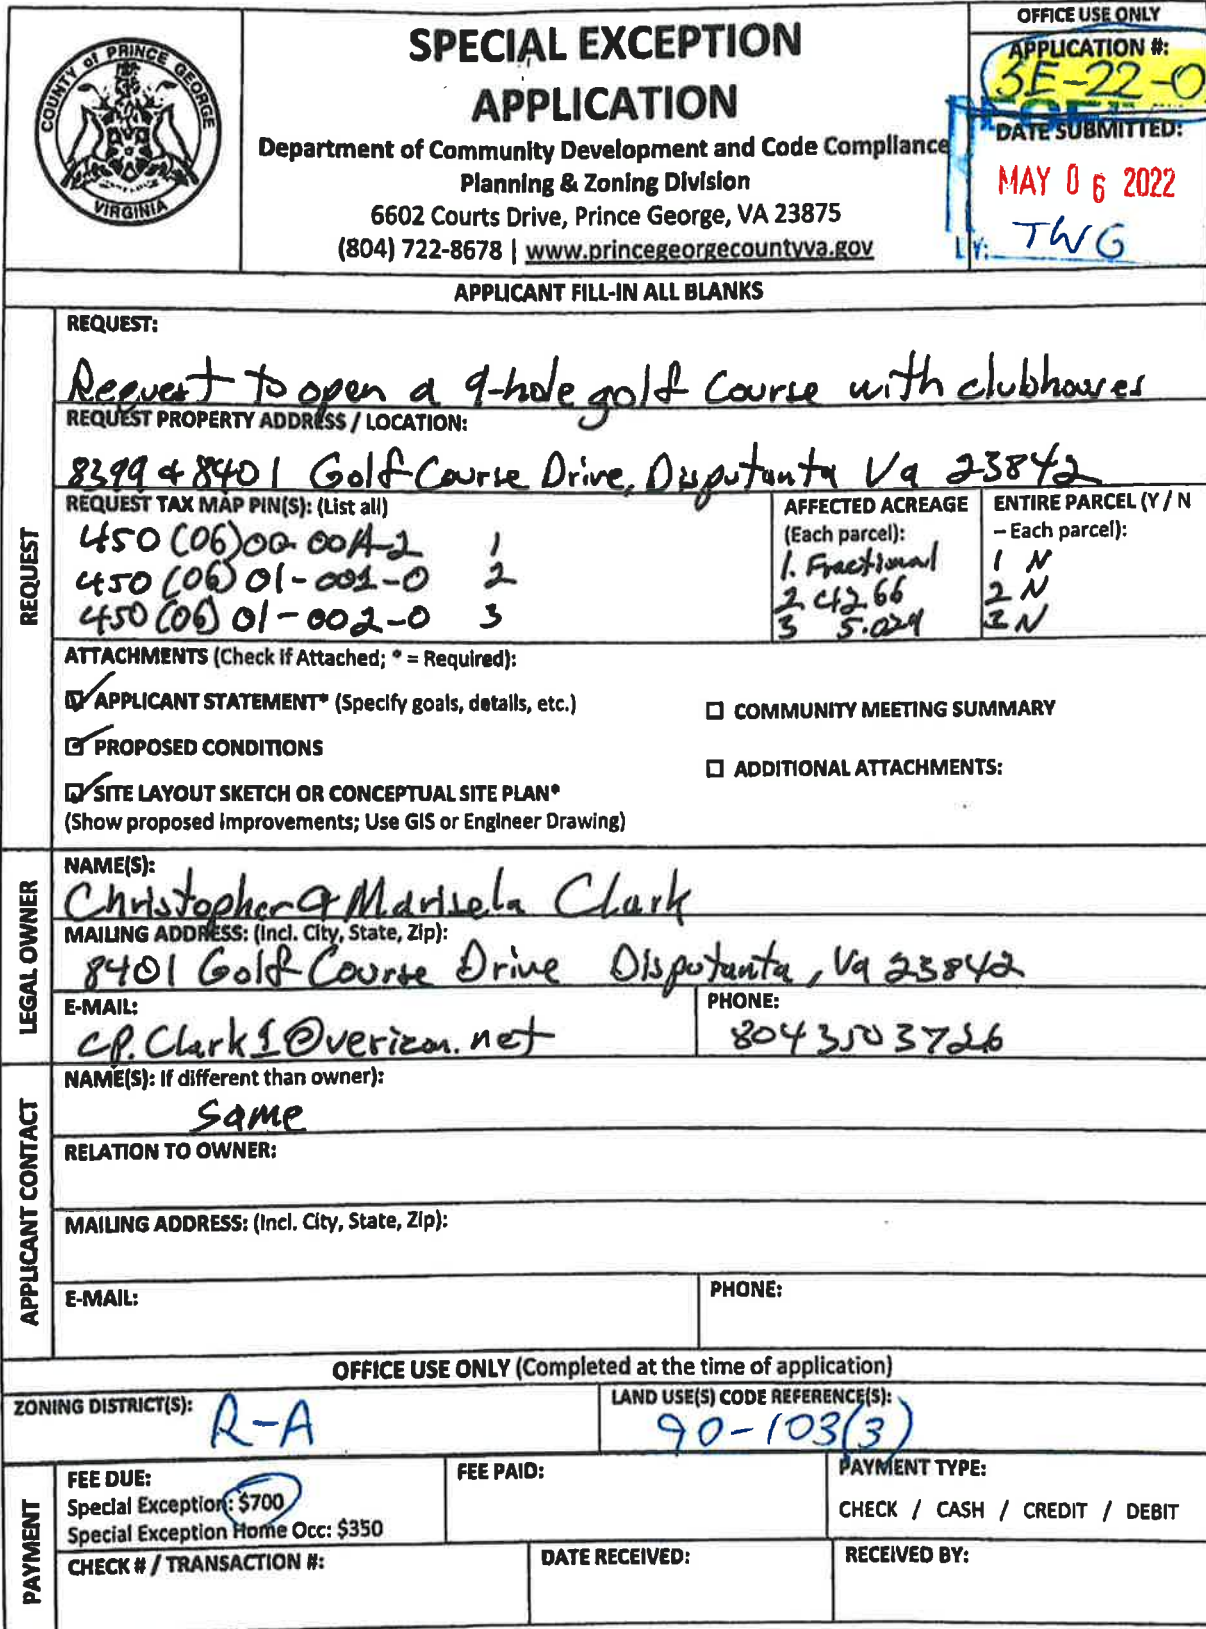 COUNTY of PRINCE GEORGE
VIRGINIA
SPECIAL EXCEPTION
APPLICATION
Department of Community Development and Code Compliance
Planning & Zoning Division
6602 Courts Drive, Prince George, VA 23875
(804) 722-8678 | www.princegeorgecountyva.gov
OFFICE USE ONLY
APPLICATION #:
SE-22-0
DATE SUBMITTED:
MAY 06 2022
TWG
APPLICANT FILL-IN ALL BLANKS
REQUEST
REQUEST:
Request to open a 9-hole golf Course with clubhouses
REQUEST PROPERTY ADDRESS / LOCATION:
8399 & 8401 Golf Course Drive, Disputanta Va 23842
REQUEST TAX MAP PIN(S): (List all)
450(06)00-00A-2 1
450(06)01-001-0 2
450(06)01-002-0 3
AFFECTED ACREAGE
(Each parcel):
1. Fractional
2 
3 5.029
ENTIRE PARCEL (Y / N
– Each parcel):
1 N
2 N
3 N
ATTACHMENTS (Check if Attached; * = Required):
☑ APPLICANT STATEMENT* (Specify goals, details, etc.)
☑ PROPOSED CONDITIONS
☑ SITE LAYOUT SKETCH OR CONCEPTUAL SITE PLAN*
(Show proposed improvements; Use GIS or Engineer Drawing)
☐ COMMUNITY MEETING SUMMARY
☐ ADDITIONAL ATTACHMENTS:
LEGAL OWNER
NAME(S):
Christopher & Marisela Clark
MAILING ADDRESS: (Incl. City, State, Zip):
8401 Golf Course Drive Disputanta, Va 23842
E-MAIL:
cp.Clark1@verizon.net
PHONE:
8043503726
APPLICANT CONTACT
NAME(S): If different than owner):
Same
RELATION TO OWNER:
MAILING ADDRESS: (Incl. City, State, Zip):
E-MAIL:
PHONE:
OFFICE USE ONLY (Completed at the time of application)
ZONING DISTRICT(S):
R-A
LAND USE(S) CODE REFERENCE(S):
90-103(3)
PAYMENT
FEE DUE:
Special Exception: $700
Special Exception Home Occ: $350
FEE PAID:
PAYMENT TYPE:
CHECK / CASH / CREDIT / DEBIT
CHECK # / TRANSACTION #:
DATE RECEIVED:
RECEIVED BY: